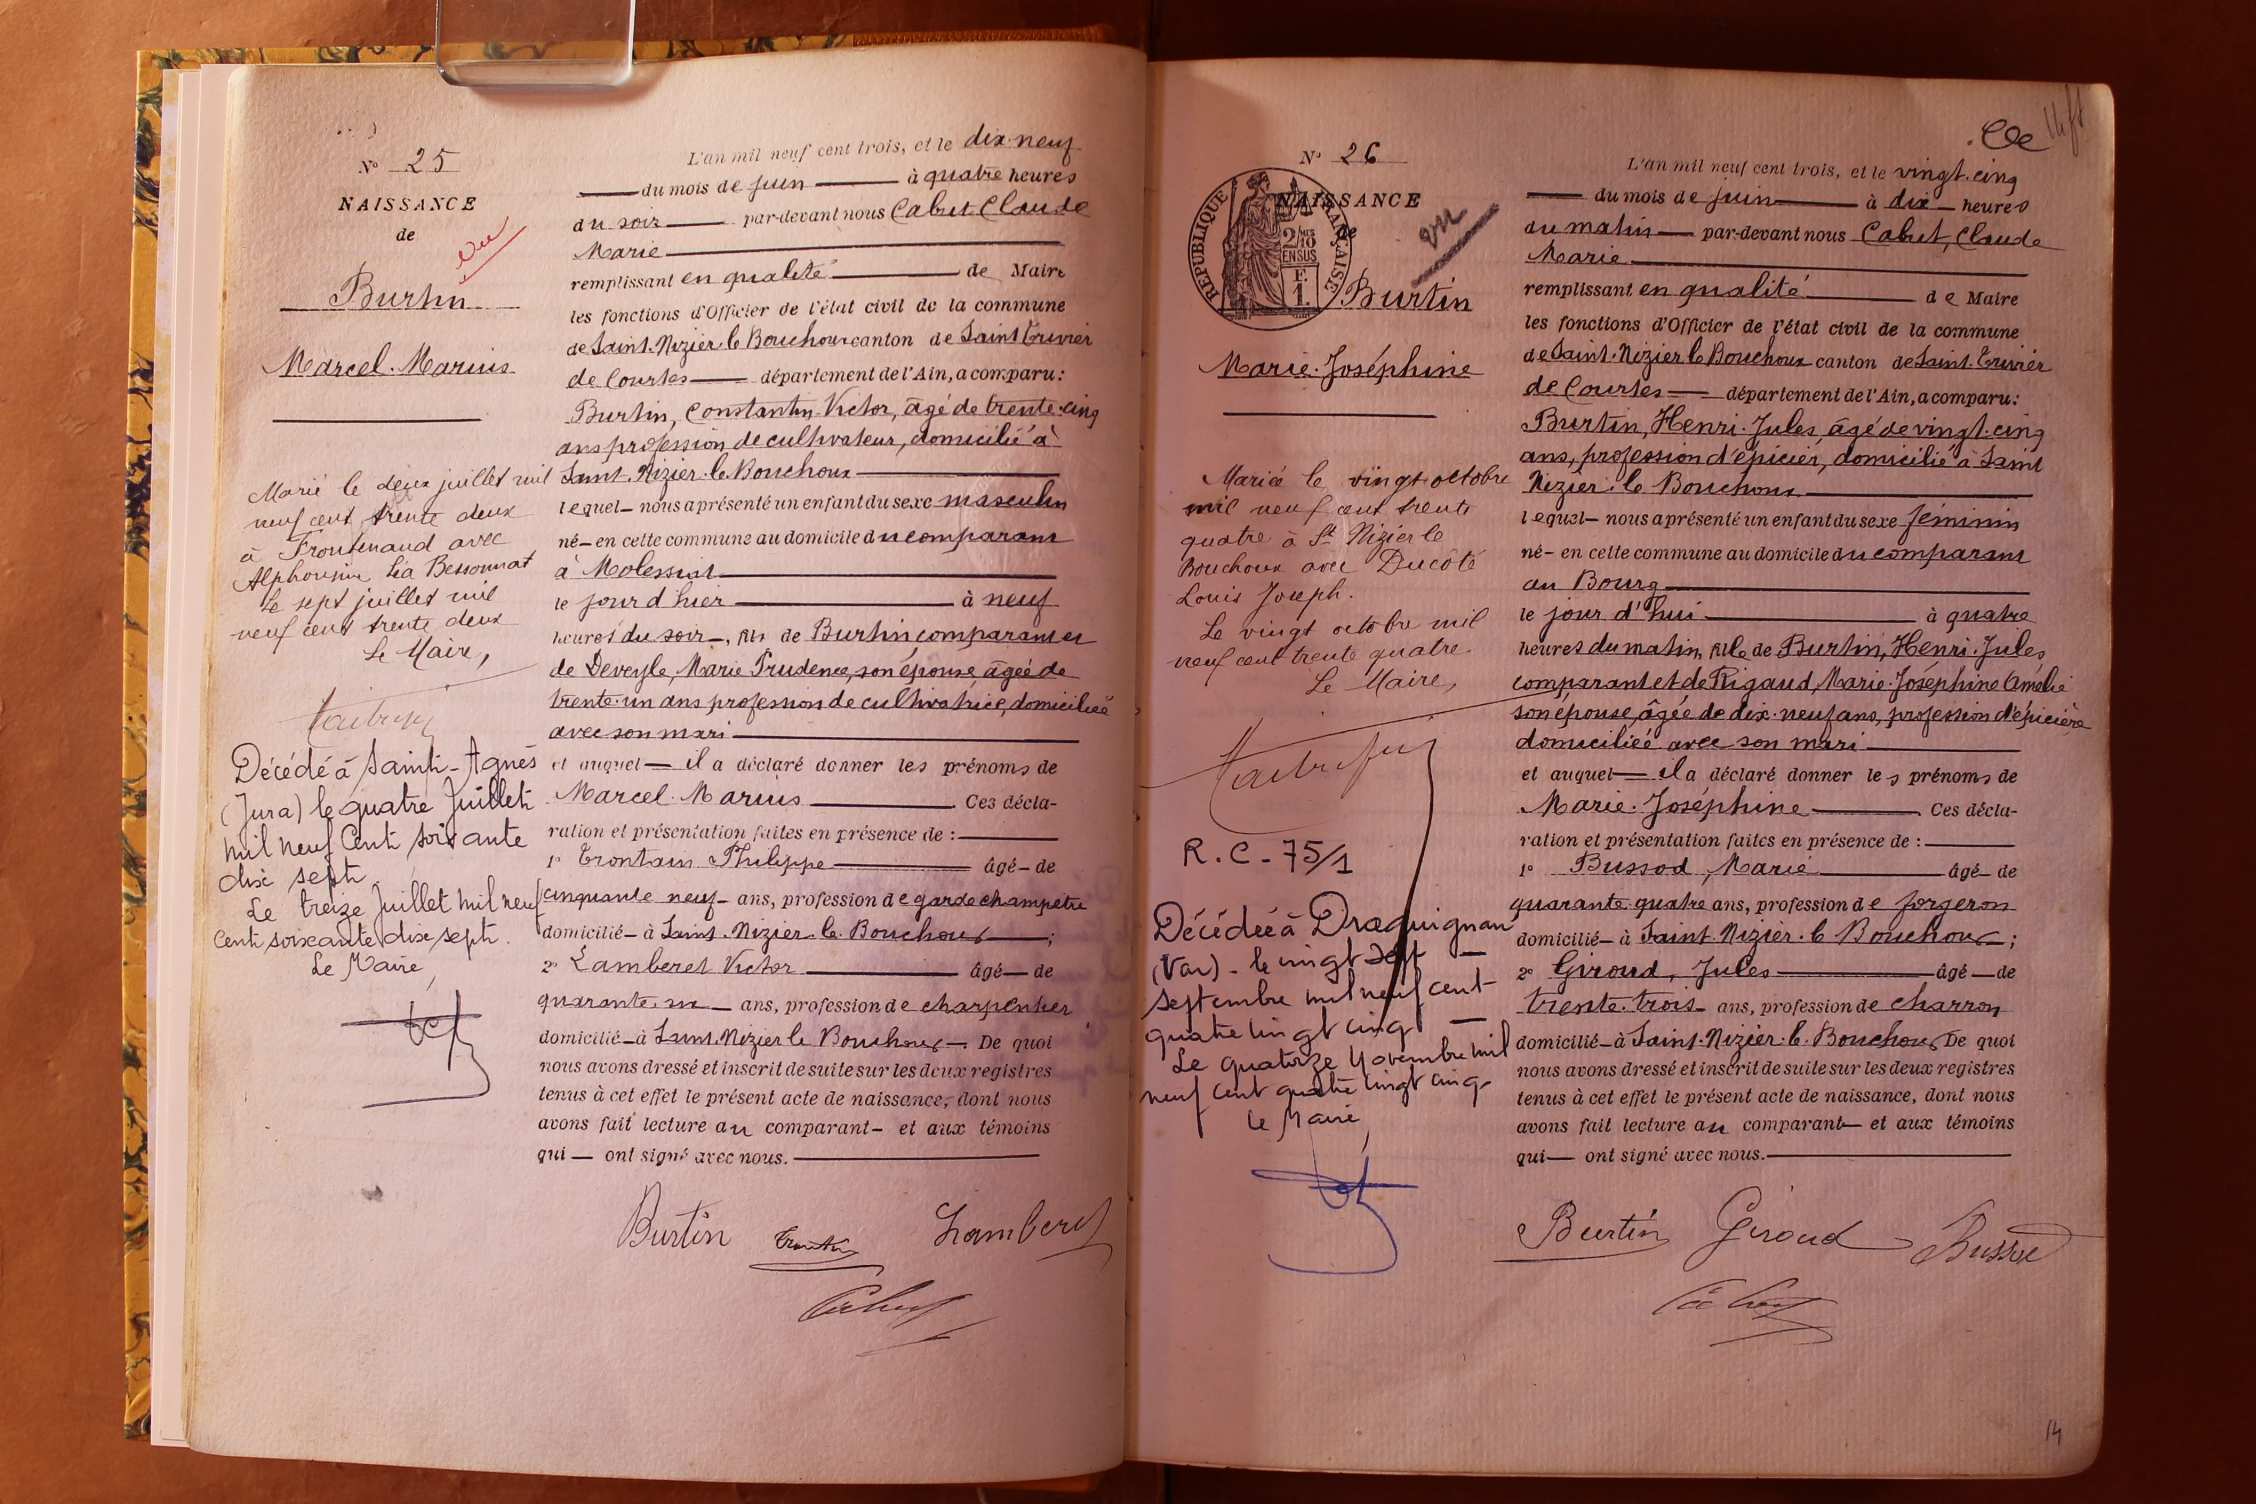 N° 25
NAISSANCE
de
Vu
Burtin
Marcel-Marius
Marié le deux juillet mil
neuf cent trente deux
à Frontenaud avec
Alphonsine Léa Bessonnat
Le sept juillet mil
neuf cent trente deux
Le Maire,
Décédé à Sainte-Agnès
(Jura) le quatre Juillet
mil neuf Cent soixante
dix sept.
Le treize Juillet mil neuf
Cent soixante dix sept.
Le Maire,
L'an mil neuf cent trois, et le dix-neuf
du mois de juin à quatre heures
du soir par-devant nous Cabut, Claude
Marie
remplissant en qualité de Maire
les fonctions d'Officier de l'état civil de la commune
de Saint-Nizier-le-Bouchoux canton de Saint Trivier
de Courtes département de l'Ain, a comparu:
Burtin, Constantin-Victor, âgé de trente-cinq
ans profession de cultivateur, domicilié à
Saint-Nizier-le-Bouchoux
lequel nous a présenté un enfant du sexe masculin
né en cette commune au domicile du comparant
à Molessiat
le jour d'hier à neuf
heures du soir, fils de Burtin, comparant et
de Deveyle, Marie Prudence, son épouse, âgée de
trente-un ans profession de cultivatrice, domiciliée
avec son mari
et auquel il a déclaré donner les prénoms de
Marcel-Marius Ces décla-
ration et présentation faites en présence de :
1° Trontain Philippe âgé de
cinquante neuf ans, profession de garde champêtre
domicilié à Saint-Nizier-le-Bouchoux ;
2° Lamberet Victor âgé de
quarante-un ans, profession de charpentier
domicilié à Saint-Nizier le Bouchoux. De quoi
nous avons dressé et inscrit de suite sur les deux registres
tenus à cet effet le présent acte de naissance, dont nous
avons fait lecture au comparant et aux témoins
qui ont signé avec nous.
Burtin Lamberet
N° 26
NAISSANCE
de
RÉPUBLIQUE FRANÇAISE
2/10 EN SUS
F. 1.
vu
Burtin
Marie-Joséphine
Mariée le vingt octobre
mil neuf cent trente
quatre à St Nizier le
Bouchoux avec Ducôté
Louis Joseph.
Le vingt octobre mil
neuf cent trente quatre
Le Maire,
R.C-75/1
Décédée à Draguignan
(Var) - le vingt sept
septembre mil neuf cent
quatre vingt cinq
Le quatorze Novembre mil
neuf cent quatre vingt cinq
le Maire,
L'an mil neuf cent trois, et le vingt-cinq
du mois de juin à dix heures
du matin par-devant nous Cabut, Claude
Marie
remplissant en qualité de Maire
les fonctions d'Officier de l'état civil de la commune
de Saint-Nizier le Bouchoux canton de Saint-Trivier
de Courtes département de l'Ain, a comparu:
Burtin, Henri-Jules, âgé de vingt-cinq
ans, profession d'épicier, domicilié à Saint
Nizier-le Bouchoux
lequel nous a présenté un enfant du sexe féminin
né en cette commune au domicile du comparant
au Bourg
le jour d'hui à quatre
heures du matin, fille de Burtin, Henri-Jules,
comparant et de Rigaud, Marie-Joséphine Amélie
son épouse, âgée de dix-neuf ans, profession d'épicière
domiciliée avec son mari
et auquel il a déclaré donner les prénoms de
Marie-Joséphine Ces décla-
ration et présentation faites en présence de :
1° Bussod, Marie âgé de
quarante quatre ans, profession de forgeron
domicilié à Saint-Nizier-le Bouchoux ;
2° Giroud, Jules âgé de
trente-trois ans, profession de charron
domicilié à Saint-Nizier-le-Bouchoux De quoi
nous avons dressé et inscrit de suite sur les deux registres
tenus à cet effet le présent acte de naissance, dont nous
avons fait lecture au comparant et aux témoins
qui ont signé avec nous.
Burtin Giroud Bussod
14